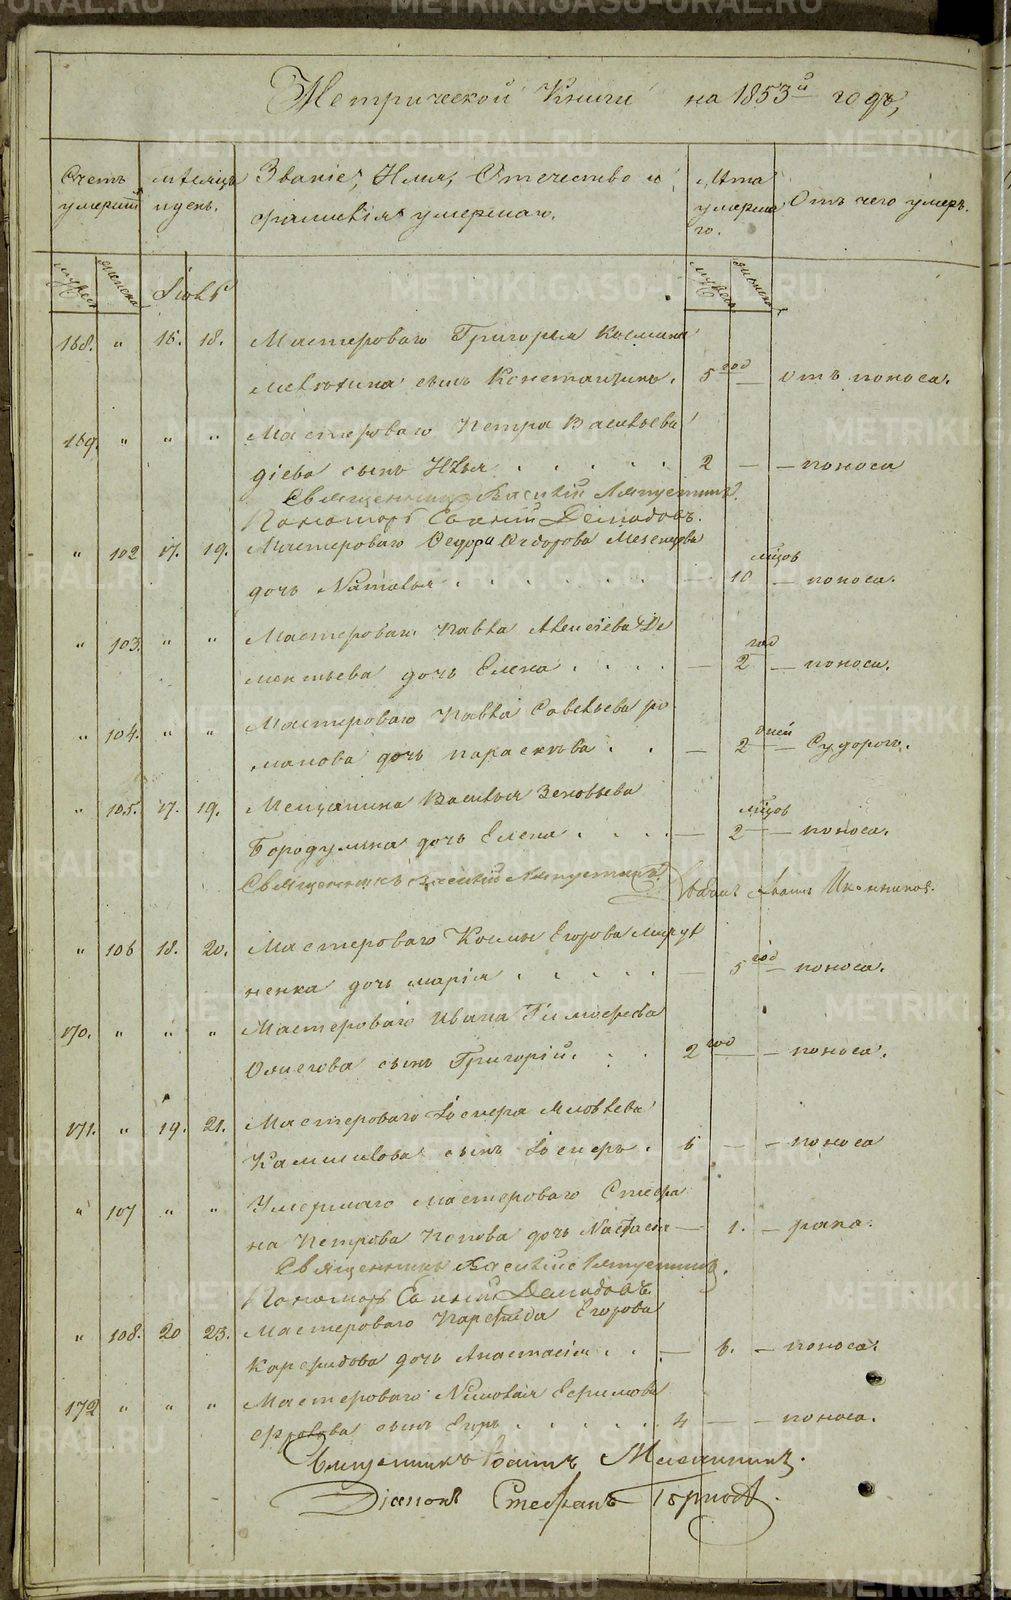 Метрической Книги на 1853й годъ,
Счетъ умершихъ
мѣсяцъ и день.
Званіе, Имя, Отечество и фамилія умершаго.
Лѣта умершаго.
Отъ чего умеръ.
мужеска женска
Іюль
мужеска женска
168. " 15. 18. Мастероваго Григорья Косьмина
сынъ Константинъ. 5 год — отъ поноса.
169. " " " Мастероваго Петра Васильева
сынъ Илья . . . . . 2 — — поноса
Священникъ Василій Ляпустинъ.
Пономарь Евгеній Демидовъ.
" 102 17. 19. Мастероваго Федора Федорова Мезенцова
дочь Наталья . . . . . . . — 10 мѣсцов — поноса.
" 103. " " Мастероваго Павла Алексіева Де
ментьева дочь Елена . . . . — 2 год — поноса.
" 104. " " Мастероваго Павла Савельева Ро
манова дочь параскева . . — 2 дней — Судорог.
" 105. 17. 19. Мещанина Василья Зеновьева
Бородулина дочь Елена . . . . — 2 мѣсцов — поноса.
Священникъ Василій Ляпустинъ. Иванъ Иконников.
" 106 18. 20. Мастероваго Косьмы Егорова
дочь марія . . . . . — 5 год — поноса.
170. " " " Мастероваго Ивана Тимофеева
сынъ Григорій. . . 2 год — — поноса.
171. " 19. 21. Мастероваго Іосифа Яковлева
сынъ Іосифъ . 5 — — поноса
" 107 " " Умершаго мастероваго Стефа
на Петрова Попова дочь Настасія — 1. — рака.
Священникъ Василій Ляпустинъ.
Пономарь Евгеній Демидовъ.
" 108. 20 23. Мастероваго Парфида Егорова
дочь Анастасія . . — 6. — поноса.
172 " " " Мастероваго Николая Ефимова
Фролова сынъ Егоръ . . . . . . 4 — — поноса.
Священникъ
Діаконъ Стефанъ Горновъ.
METRIKI.GASO-URAL.RU